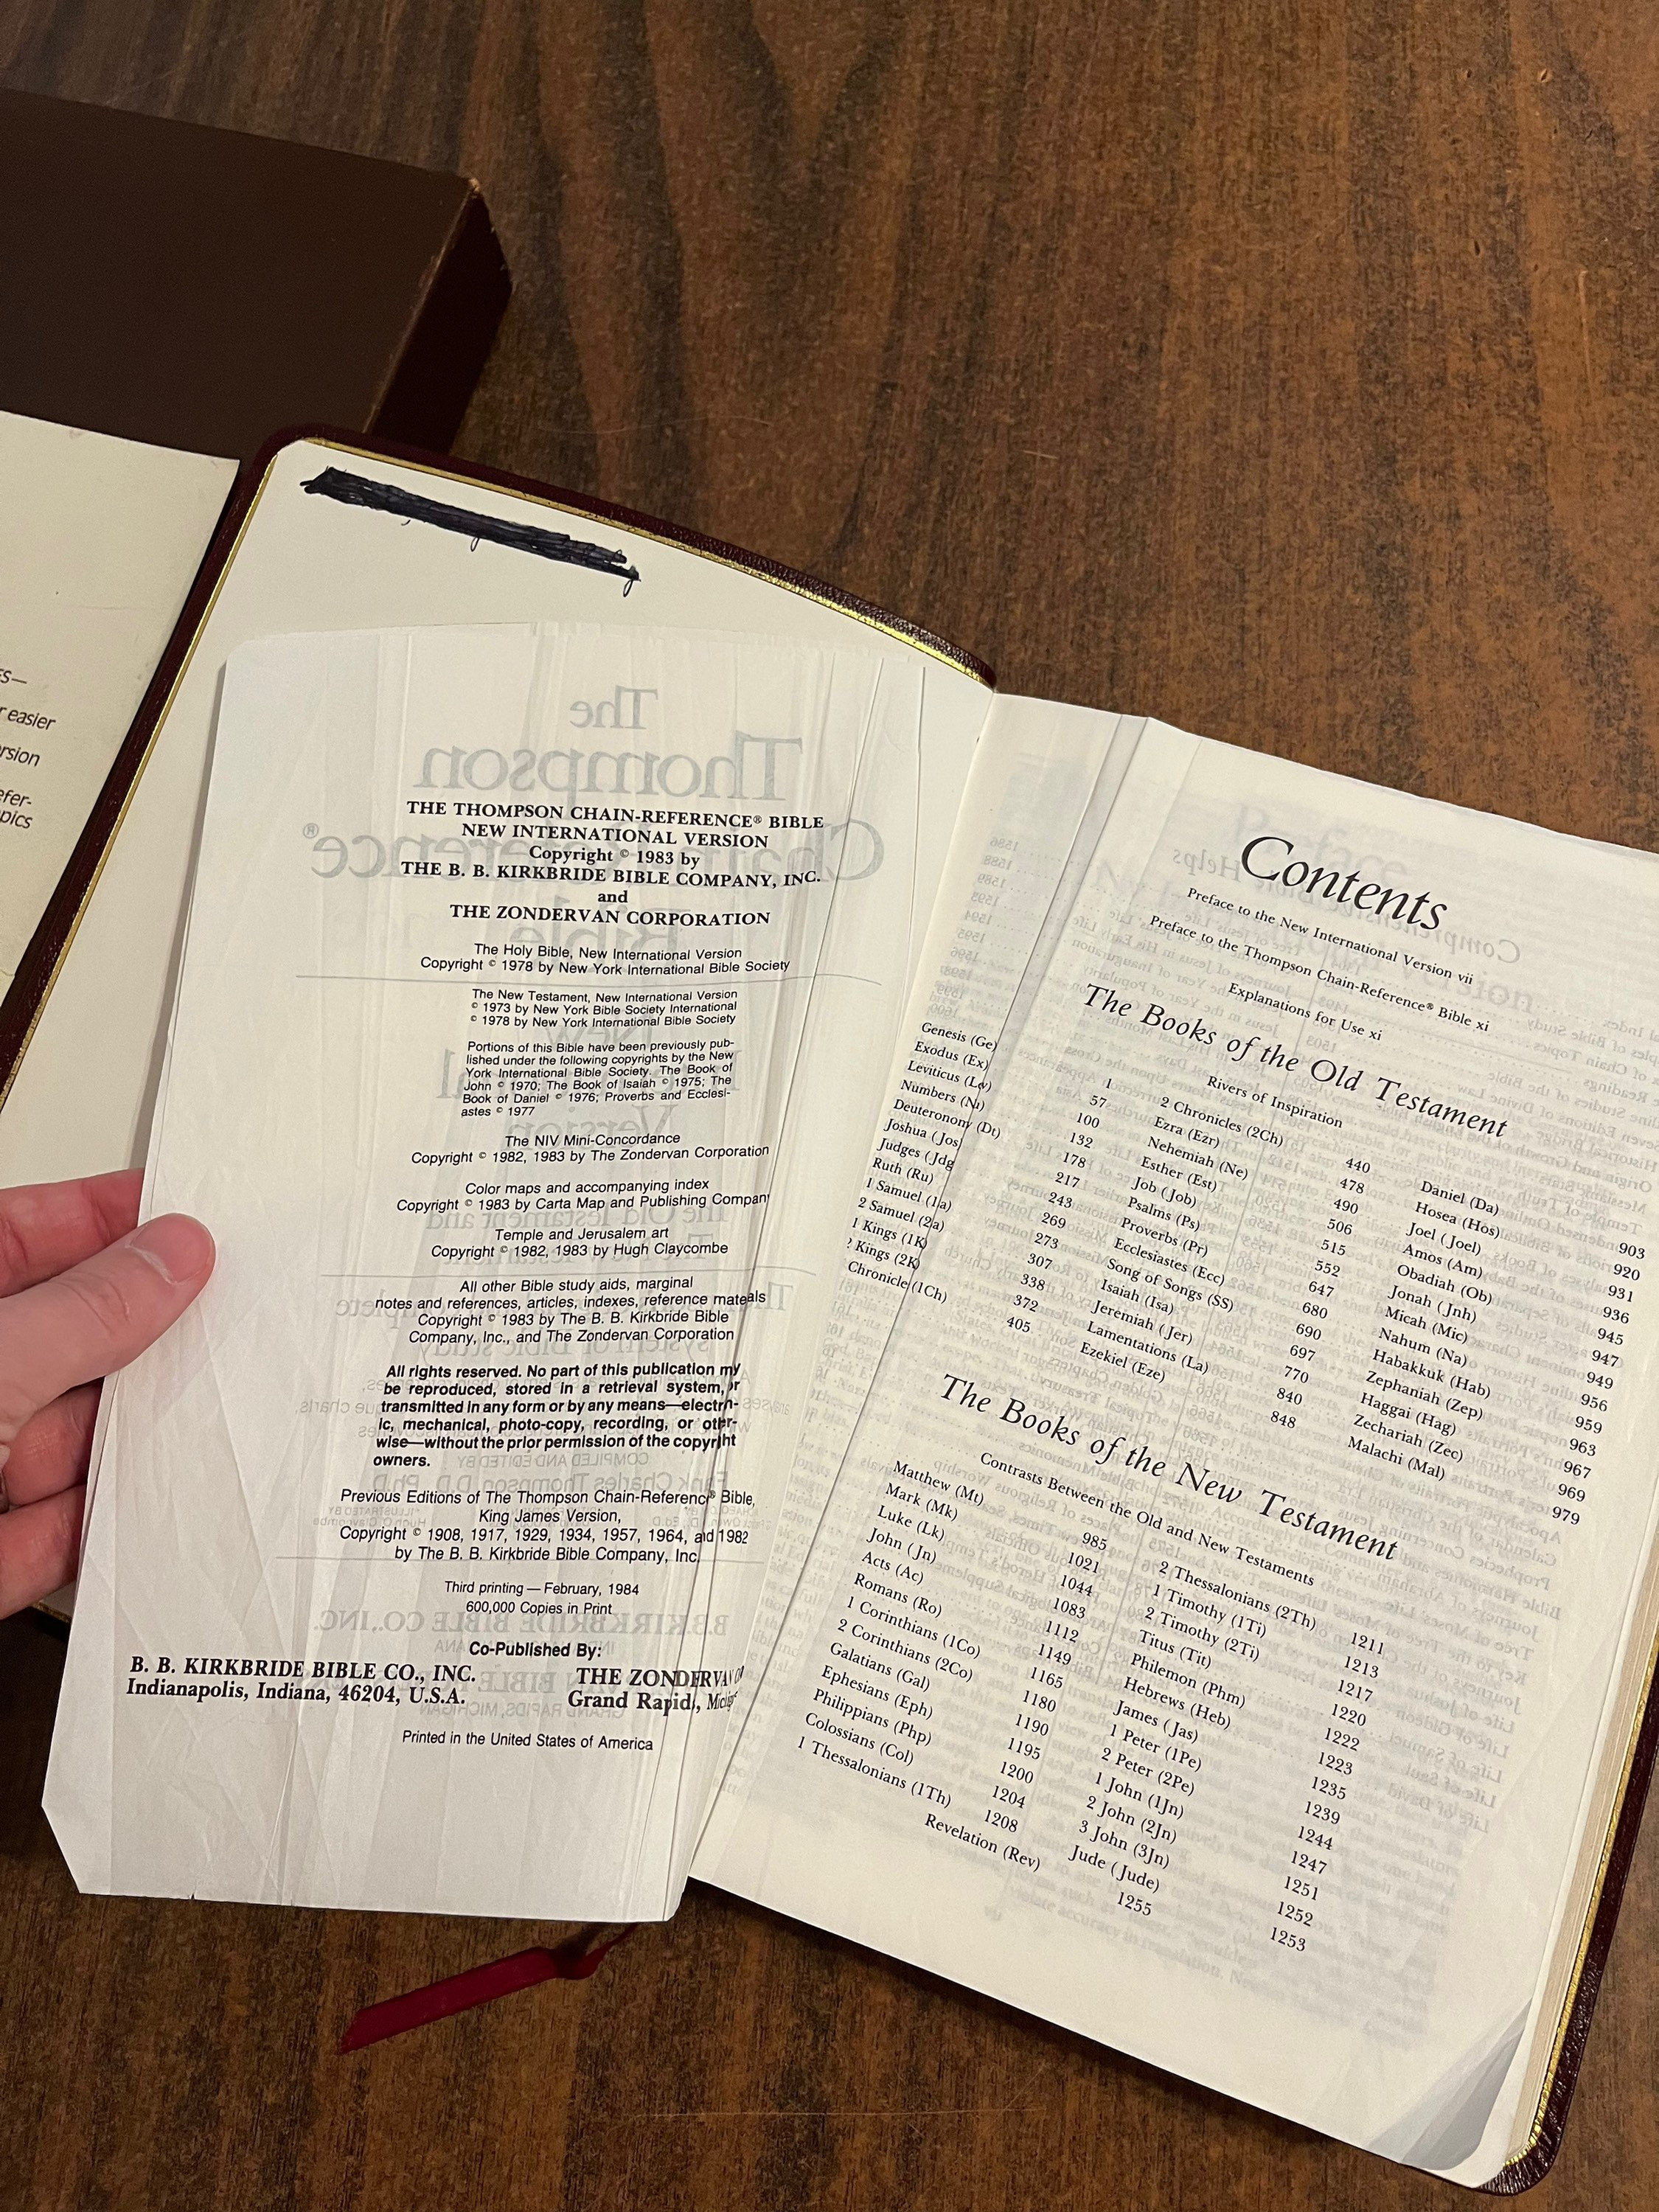 s—
r easier
rsion
efer-
pics
THE THOMPSON CHAIN-REFERENCE® BIBLE
NEW INTERNATIONAL VERSION
Copyright © 1983 by
THE B. B. KIRKBRIDE BIBLE COMPANY, INC.
and
THE ZONDERVAN CORPORATION
The Holy Bible, New International Version
Copyright © 1978 by New York International Bible Society
The New Testament, New International Version
© 1973 by New York Bible Society International
© 1978 by New York International Bible Society
Portions of this Bible have been previously pub-
lished under the following copyrights by the New
York International Bible Society. The Book of
John © 1970; The Book of Isaiah © 1975; The
Book of Daniel © 1976; Proverbs and Ecclesi-
astes © 1977
The NIV Mini-Concordance
Copyright © 1982, 1983 by The Zondervan Corporation
Color maps and accompanying index
Copyright © 1983 by Carta Map and Publishing Company
Temple and Jerusalem art
Copyright © 1982, 1983 by Hugh Claycombe
All other Bible study aids, marginal
notes and references, articles, indexes, reference materials
Copyright © 1983 by The B. B. Kirkbride Bible
Company, Inc., and The Zondervan Corporation
All rights reserved. No part of this publication may
be reproduced, stored in a retrieval system, or
transmitted in any form or by any means—electron-
ic, mechanical, photo-copy, recording, or other-
wise—without the prior permission of the copyright
owners.
Previous Editions of The Thompson Chain-Reference® Bible,
King James Version,
Copyright © 1908, 1917, 1929, 1934, 1957, 1964, and 1982
by The B. B. Kirkbride Bible Company, Inc.
Third printing — February, 1984
600,000 Copies in Print
Co-Published By:
B. B. KIRKBRIDE BIBLE CO., INC.
Indianapolis, Indiana, 46204, U.S.A.
THE ZONDERVAN
Grand Rapids,
Printed in the United States of America
Contents
Preface to the New International Version vii
Preface to the Thompson Chain-Reference® Bible xi
Explanations for Use xi
The Books of the Old Testament
Rivers of Inspiration
Genesis (Ge) 1
Exodus (Ex) 57
Leviticus (Lev) 100
Numbers (Nu) 132
Deuteronomy (Dt) 178
Joshua (Jos) 217
Judges (Jdg 243
Ruth (Ru) 269
1 Samuel (1Sa) 273
2 Samuel (2Sa) 307
1 Kings (1K) 338
2 Kings (2K) 372
Chronicle (1Ch) 405
2 Chronicles (2Ch) 440
Ezra (Ezr) 478
Nehemiah (Ne) 490
Esther (Est) 506
Job (Job) 515
Psalms (Ps) 552
Proverbs (Pr) 647
Ecclesiastes (Ecc) 680
Song of Songs (SS) 690
Isaiah (Isa) 697
Jeremiah (Jer) 770
Lamentations (La) 840
Ezekiel (Eze) 848
Daniel (Da) 903
Hosea (Hos) 920
Joel (Joel) 931
Amos (Am) 936
Obadiah (Ob) 945
Jonah (Jnh) 947
Micah (Mic) 949
Nahum (Na) 956
Habakkuk (Hab) 959
Zephaniah (Zep) 963
Haggai (Hag) 967
Zechariah (Zec) 969
Malachi (Mal) 979
The Books of the New Testament
Contrasts Between the Old and New Testaments
Matthew (Mt) 985
Mark (Mk) 1021
Luke (Lk) 1044
John (Jn) 1083
Acts (Ac) 1112
Romans (Ro) 1149
1 Corinthians (1Co) 1165
2 Corinthians (2Co) 1180
Galatians (Gal) 1190
Ephesians (Eph) 1195
Philippians (Php) 1200
Colossians (Col) 1204
1 Thessalonians (1Th) 1208
2 Thessalonians (2Th) 1211
1 Timothy (1Ti) 1213
2 Timothy (2Ti) 1217
Titus (Tit) 1220
Philemon (Phm) 1222
Hebrews (Heb) 1223
James (Jas) 1235
1 Peter (1Pe) 1239
2 Peter (2Pe) 1244
1 John (1Jn) 1247
2 John (2Jn) 1251
3 John (3Jn) 1252
Jude (Jude) 1253
Revelation (Rev) 1255